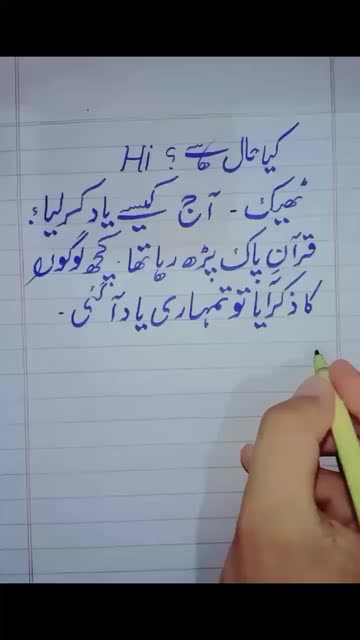 Hi کیا حال ہے ؟
ٹھیک ۔ آج کیسے یاد کر لیا ؟
قرآنِ پاک پڑھ رہا تھا ۔ کچھ لوگوں
کا ذکر آیا تو تمہاری یاد آ گئی ۔